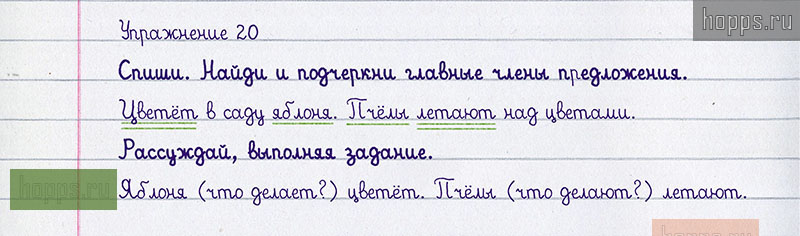 hopps.ru
Упражнение 20
Спиши. Найди и подчеркни главные члены предложения.
Цветёт в саду яблоня. Пчёлы летают над цветами.
Рассуждай, выполняя задание.
hopps.ru
Яблоня (что делает?) цветёт. Пчёлы (что делают?) летают.
hopps.ru